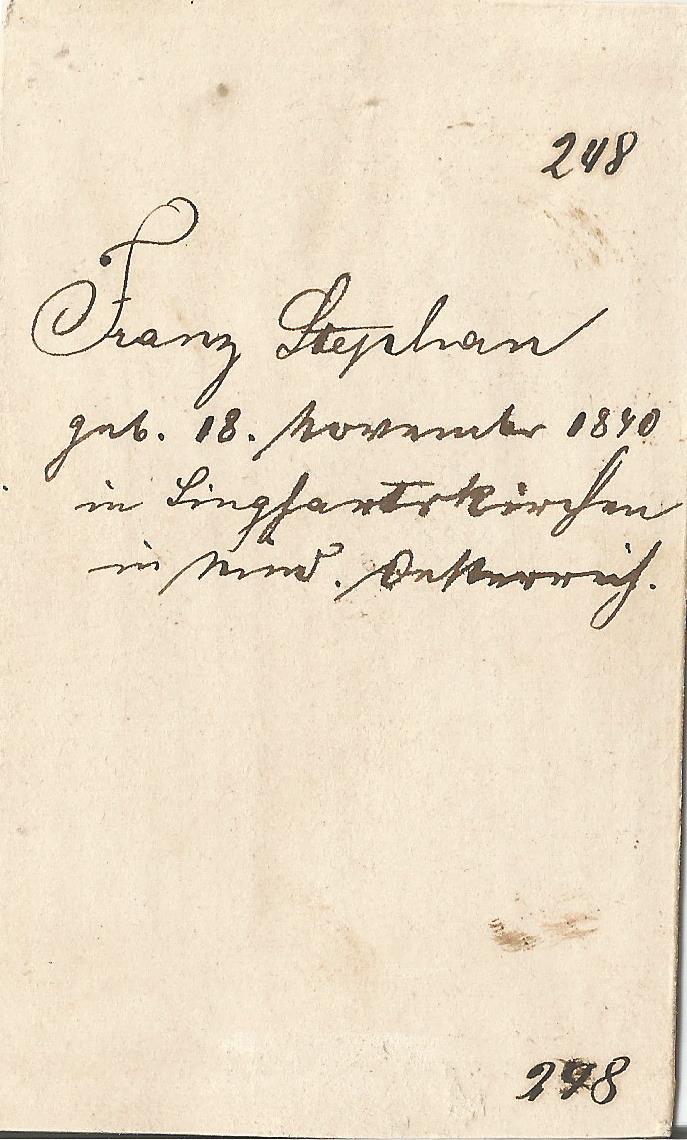 248
Franz Stephan
geb. 18. November 1840
in
in Nied. Oesterreich.
298